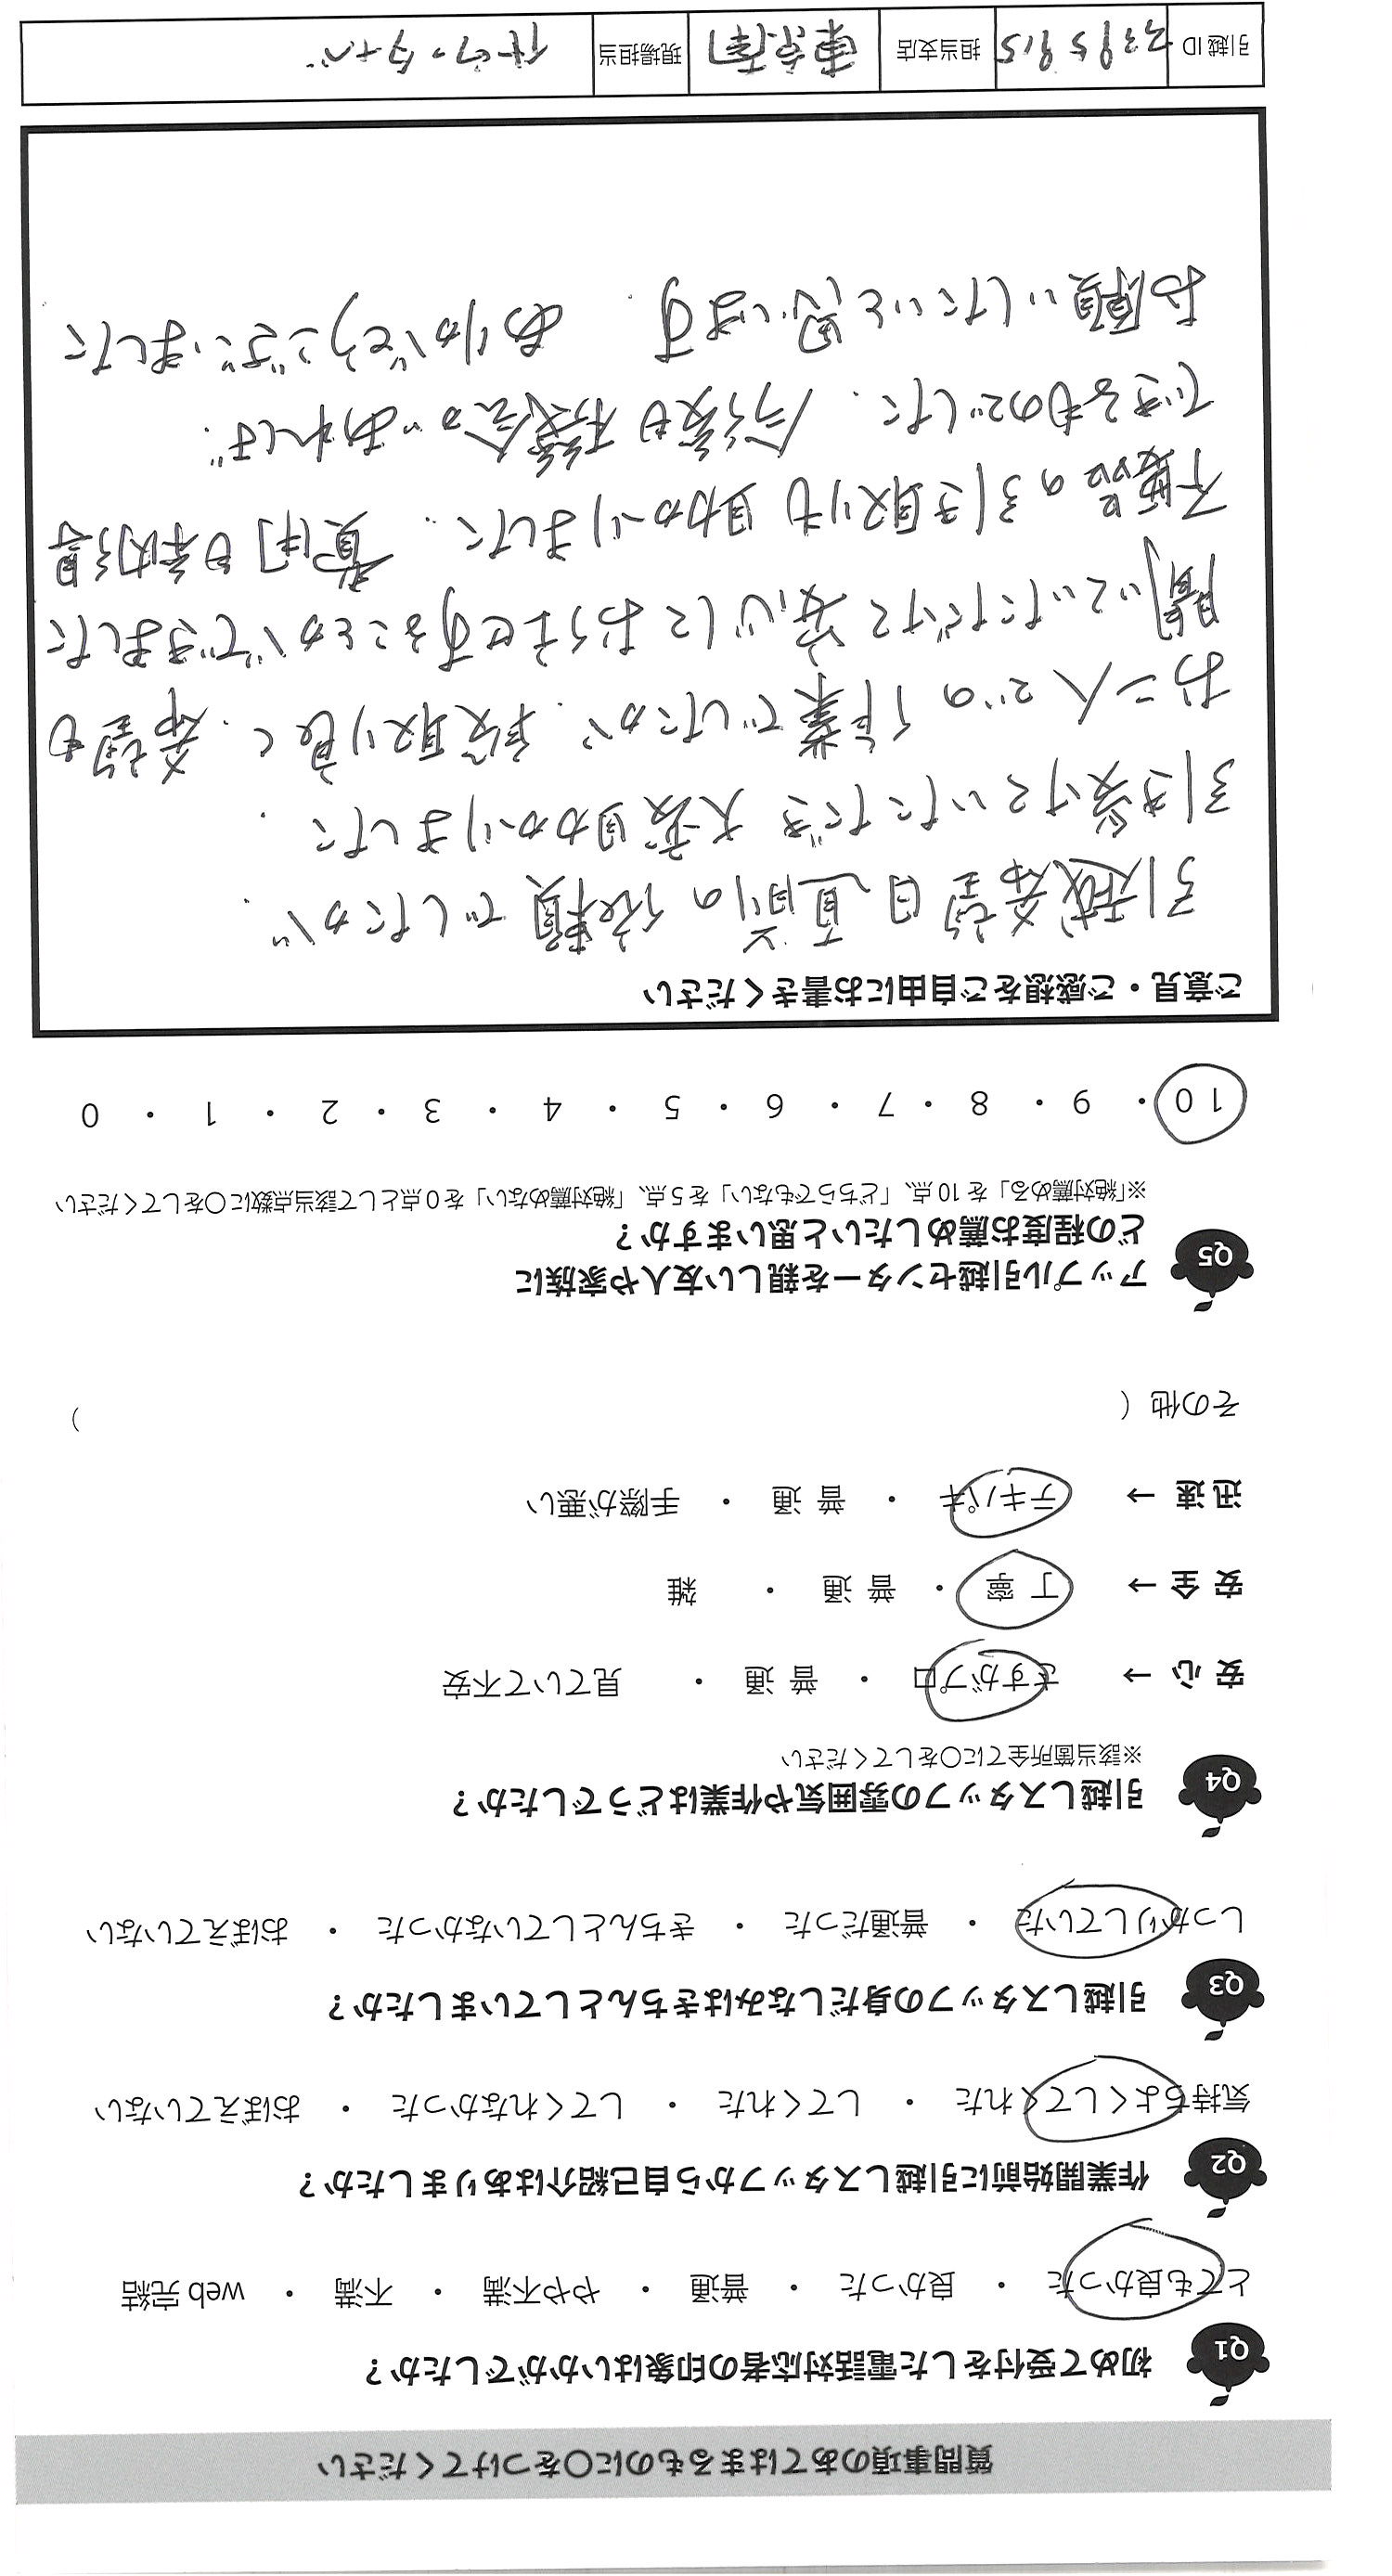 質問事項のあてはまるものに○をつけてください
Q1 初めて受付をした電話対応者の印象はいかがでしたか？
とても良かった ・ 良かった ・ 普通 ・ やや不満 ・ 不満 ・ web 完結
Q2 作業開始前に引越しスタッフから自己紹介はありましたか？
気持ちよくしてくれた ・ してくれた ・ してくれなかった ・ おぼえていない
Q3 引越しスタッフの身だしなみはきちんとしていましたか？
しっかりしていた ・ 普通だった ・ きちんとしていなかった ・ おぼえていない
Q4 引越しスタッフの雰囲気や作業はどうでしたか？
※該当箇所全てに○をしてください
安 心 → さすがプロ ・ 普 通 ・ 見ていて不安
安 全 → 丁 寧 ・ 普 通 ・ 雑
迅 速 → テキパキ ・ 普 通 ・ 手際が悪い
その他（ ）
Q5 アップル引越センターを親しい友人や家族に
どの程度お薦めしたいと思いますか？
※「絶対薦める」を 10 点、「どちらでもない」を 5 点、「絶対薦めない」を 0 点として該当点数に○をしてください
10 ・ 9 ・ 8 ・ 7 ・ 6 ・ 5 ・ 4 ・ 3 ・ 2 ・ 1 ・ 0
ご意見・ご感想をご自由にお書きください
引越希望日直前の依頼でしたが、
引き受けていただき大変助かりました．
お二人での作業でしたが、段取り良く、希望も
聞いていただけて安心してお任せすることができました
不要品の引き取りも助かりました．費用も納得
できるものでした．今後も機会があれば、
お願いしたいと思います．ありがとうございました
引越 ID 担当支店 東京南 現場担当